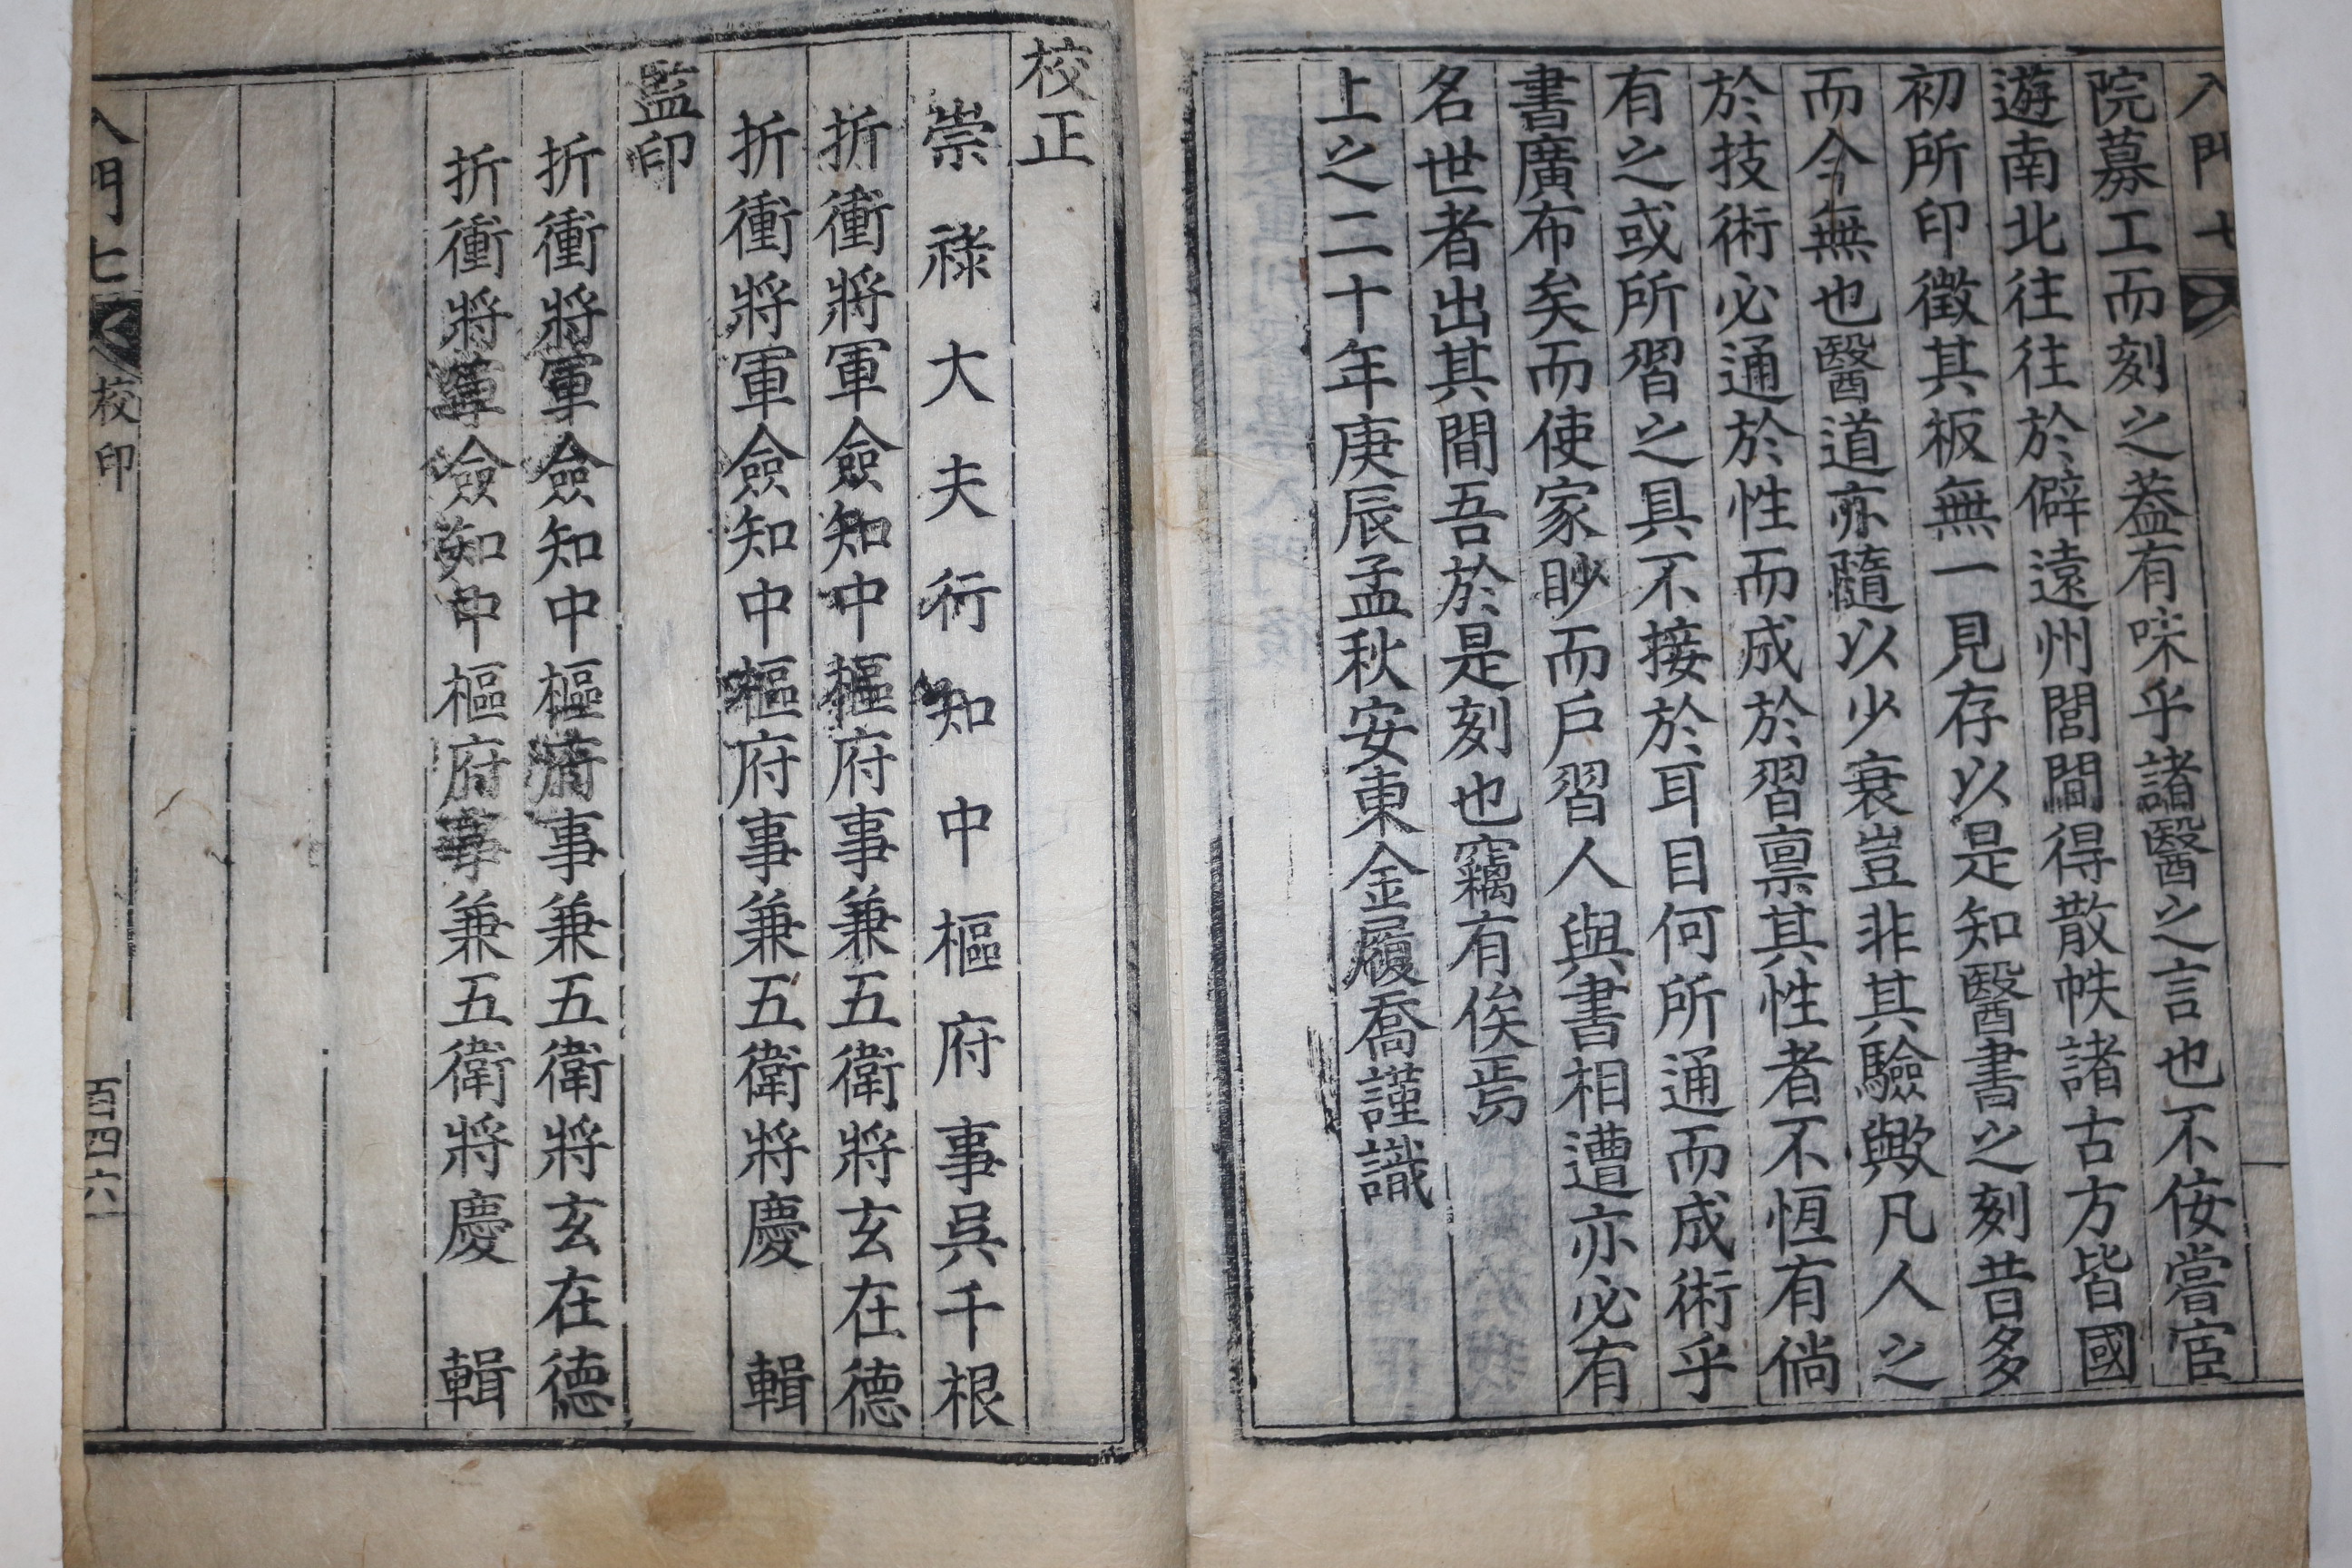 入門七
院募工而刻之蓋有味乎諸醫之言也不佞嘗宦
遊南北往往於僻遠州閭間得散帙諸古方皆國
初所印徵其板無一見存以是知醫書之刻昔多
而今無也醫道亦隨以少衰豈非其驗歟凡人之
於技術必通於性而成於習禀其性者不恒有倘
有之或所習之具不接於耳目何所通而成術乎
書廣布矣而使家眇而戶習人與書相遭亦必有
名世者出其間吾於是刻也竊有俟焉
上之二十年庚辰孟秋安東金履喬謹識
校正
崇祿大夫行知中樞府事吳千根
折衝將軍僉知中樞府事兼五衛將玄在德
折衝將軍僉知中樞府事兼五衛將慶 輯
監印
折衝將軍僉知中樞府事兼五衛將玄在德
折衝將軍僉知中樞府事兼五衛將慶 輯
入門七 校印 百四六